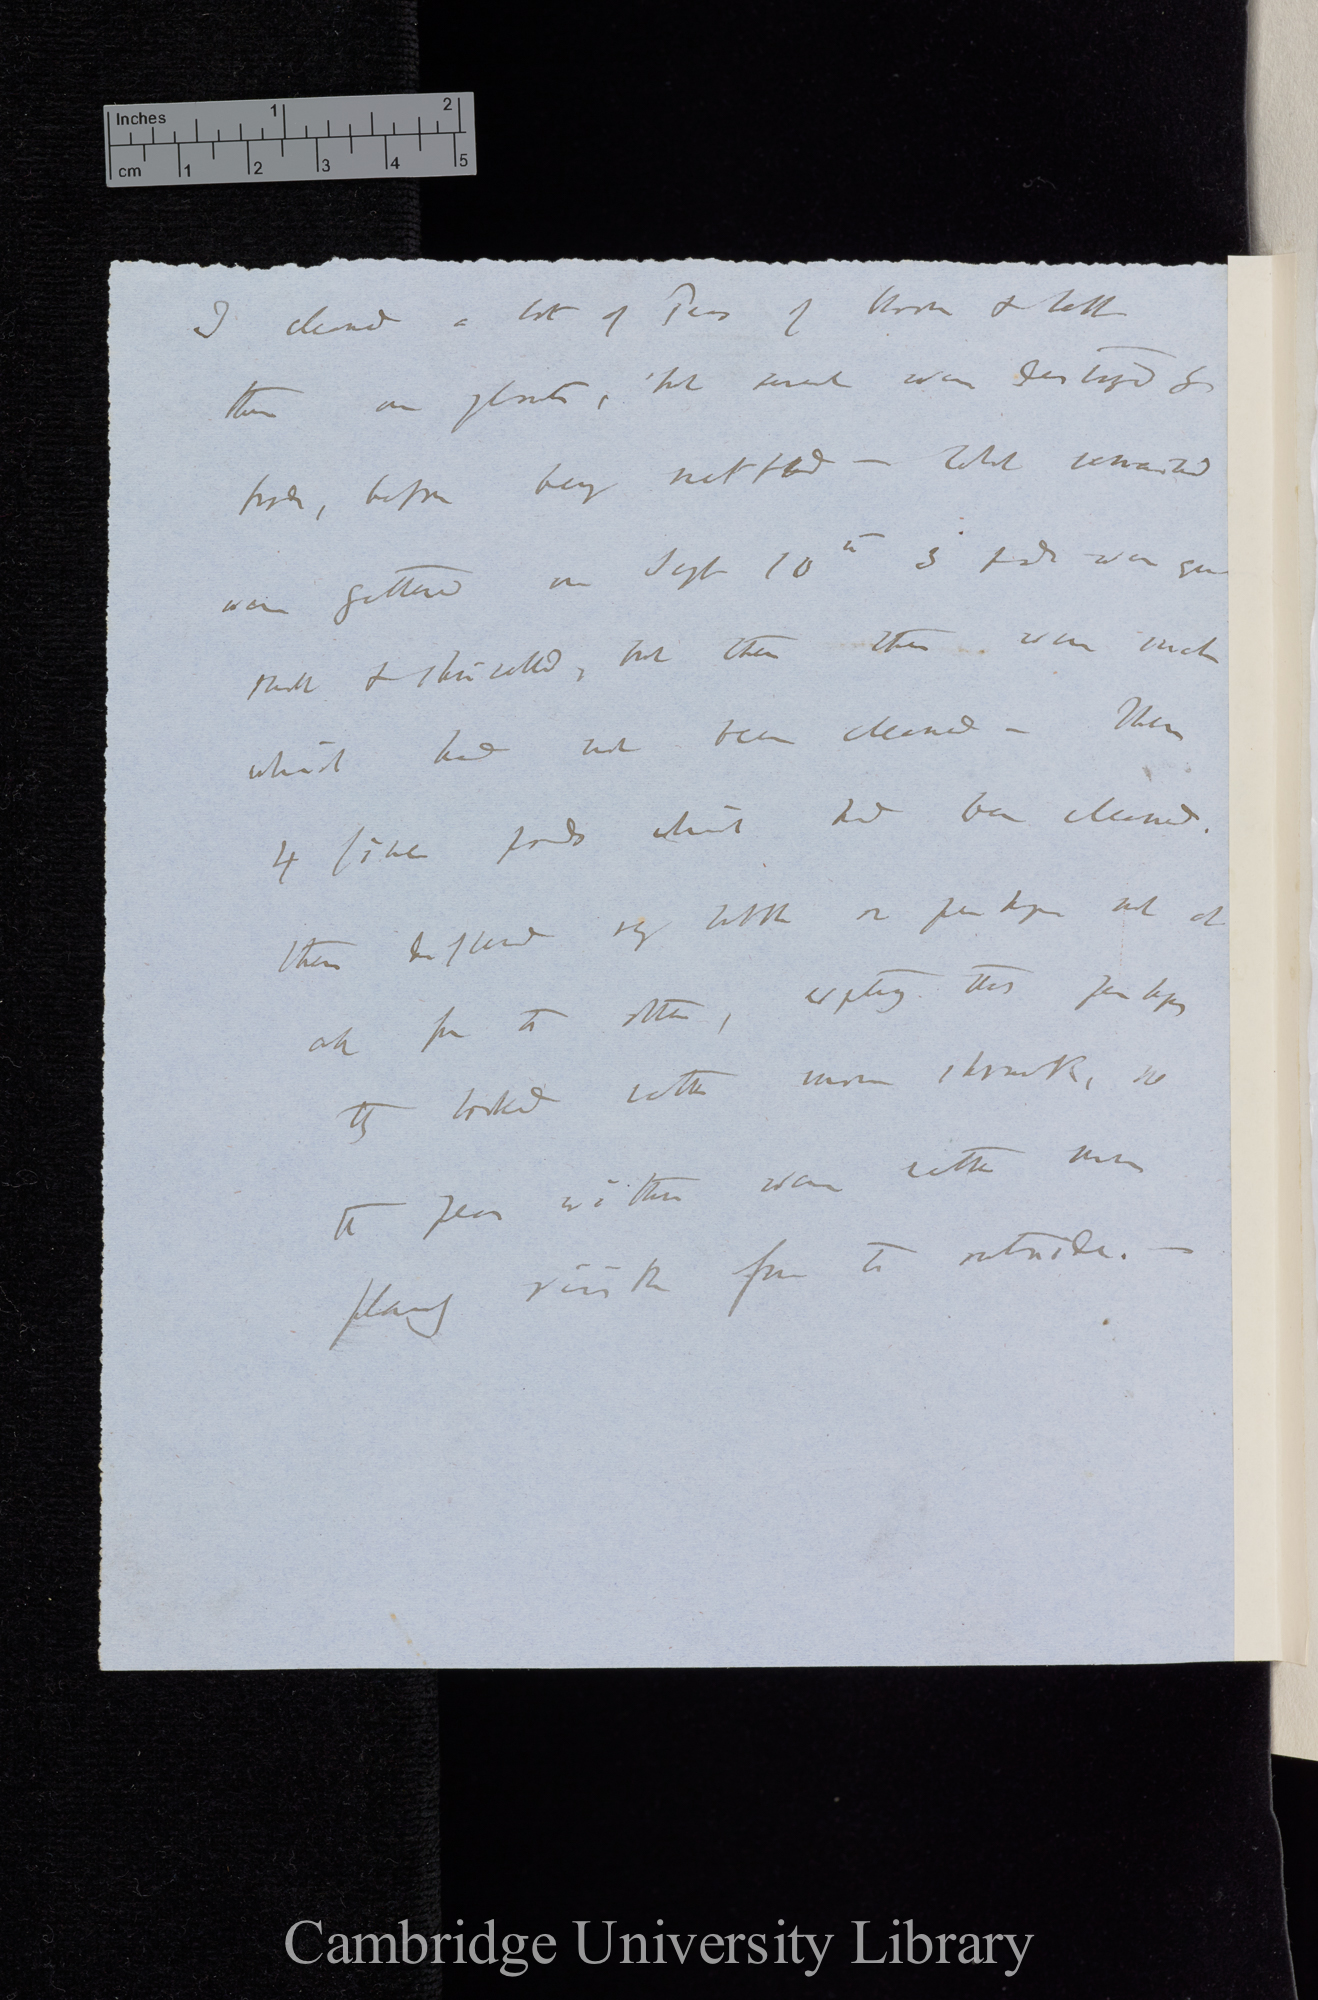 Inches 1 2
cm 1 2 3 4 5
I cleaned a lot of Peas of bloom & left
them on plants, but several were destroyed by
birds, before being netted — What remained
were gathered on Sept 10th 3 pods were quite
small & shrivelled, but then there were such
which had not been cleaned — There
4 fine pods which had been cleaned.
these differed very little or perhaps not at
all from the others, excepting that perhaps
they looked rather more shrunk, so
the peas within were rather more
plainly visible from the outside. —
Cambridge University Library